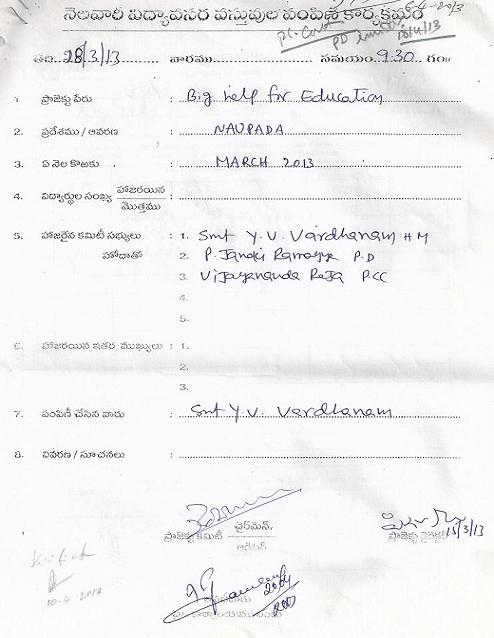 నెలవారి విద్యావసర వస్తువుల పంపిణీ కార్యక్రమం
5-4-2013
10/4/13
తేది..28/3/13 వారము సమయం.9.30. గం॥
1. ప్రాజెక్టు పేరు : Big help for Education
2. ప్రదేశము / ఆవరణ : NAUPADA
3. ఏ నెల కొఱకు : MARCH 2013
4. విద్యార్థుల సంఖ్య హాజరయిన / మొత్తము :
5. హాజరైన కమిటీ సభ్యులు : 1. Smt Y. V. Vardhanam HM
హోదాతో 2. P. Janaki Ramayya P.D
3. Vijayananda Raja PCC
4.
5.
6. హాజరయిన ఇతర ముఖ్యులు : 1.
2.
3.
7. పంపిణీ చేసిన వారు : Smt Y. V. Vardhanam
8. వివరణ / సూచనలు :
ప్రాజెక్టు కమిటీ ఛైర్మెన్ / ఆడిటర్
ప్రాజెక్టు డైరెక్టర్ 15/3/13
Verified
10-4-2013
20/4